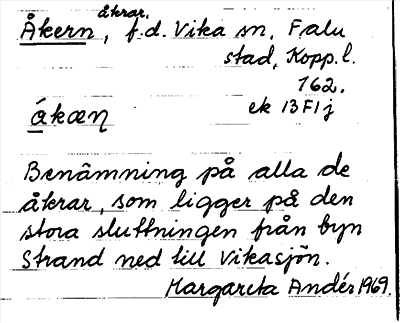 Åkern, åkrar, f.d. Vika sn, Falu
stad, Kopp.l.
162.
ákæƞ ek 13F1j
Benämning på alla de
åkrar, som ligger på den
stora sluttningen från byn
Strand ned till Vikasjön.
Margareta Andér 1969.